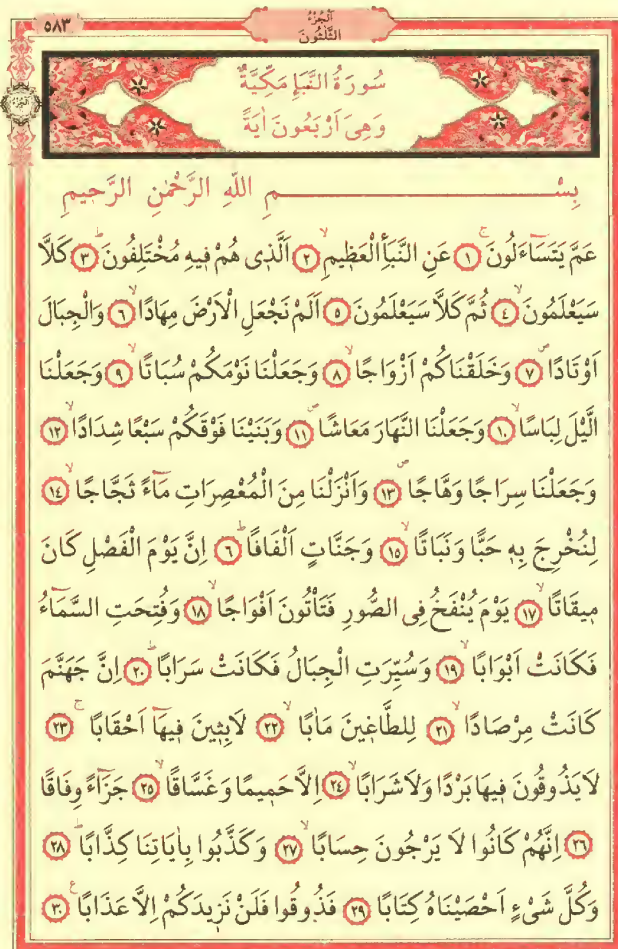 ٥٨٣
اَلْجُزْءُ
الثَّلٰثُونَ
سُورَةُ النَّبَاِ مَكِّيَّةٌ
وَهِىَ اَرْبَعُونَ اٰيَةً
بِسْمِ اللّٰهِ الرَّحْمٰنِ الرَّحٖيمِ
عَمَّ يَتَسَٓاءَلُونَۚ ١ عَنِ النَّبَأِ الْعَظٖيمِۙ ٢ اَلَّذٖى هُمْ فٖيهِ مُخْتَلِفُونَۜ ٣ كَلَّا
سَيَعْلَمُونَۙ ٤ ثُمَّ كَلَّا سَيَعْلَمُونَ ٥ اَلَمْ نَجْعَلِ الْاَرْضَ مِهَادًاۙ ٦ وَالْجِبَالَ
اَوْتَادًاۖ ٧ وَخَلَقْنَاكُمْ اَزْوَاجًاۙ ٨ وَجَعَلْنَا نَوْمَكُمْ سُبَاتًاۙ ٩ وَجَعَلْنَا
الَّيْلَ لِبَاسًاۙ ١٠ وَجَعَلْنَا النَّهَارَ مَعَاشًاۖ ١١ وَبَنَيْنَا فَوْقَكُمْ سَبْعًا شِدَادًاۙ ١٢
وَجَعَلْنَا سِرَاجًا وَهَّاجًاۖ ١٣ وَاَنْزَلْنَا مِنَ الْمُعْصِرَاتِ مَٓاءً ثَجَّاجًاۙ ١٤
لِنُخْرِجَ بِهٖ حَبًّا وَنَبَاتًاۙ ١٥ وَجَنَّاتٍ اَلْفَافًاۜ ٦ اِنَّ يَوْمَ الْفَصْلِ كَانَ
مٖيقَاتًاۙ ١٧ يَوْمَ يُنْفَخُ فِى الصُّورِ فَتَأْتُونَ اَفْوَاجًاۙ ١٨ وَفُتِحَتِ السَّمَٓاءُ
فَكَانَتْ اَبْوَابًاۙ ١٩ وَسُيِّرَتِ الْجِبَالُ فَكَانَتْ سَرَابًاۜ ٢٠ اِنَّ جَهَنَّمَ
كَانَتْ مِرْصَادًاۙ ٢١ لِلطَّاغٖينَ مَاٰبًاۙ ٢٢ لَابِثٖينَ فٖيهَٓا اَحْقَابًاۚ ٢٣
لَا يَذُوقُونَ فٖيهَا بَرْدًا وَلَا شَرَابًاۙ ٢٤ اِلَّا حَمٖيمًا وَغَسَّاقًاۙ ٢٥ جَزَٓاءً وِفَاقًا
٢٦ اِنَّهُمْ كَانُوا لَا يَرْجُونَ حِسَابًاۙ ٢٧ وَكَذَّبُوا بِاٰيَاتِنَا كِذَّابًاۜ ٢٨
وَكُلَّ شَىْءٍ اَحْصَيْنَاهُ كِتَابًا ٢٩ فَذُوقُوا فَلَنْ نَزٖيدَكُمْ اِلَّا عَذَابًاࣖ ٣٠